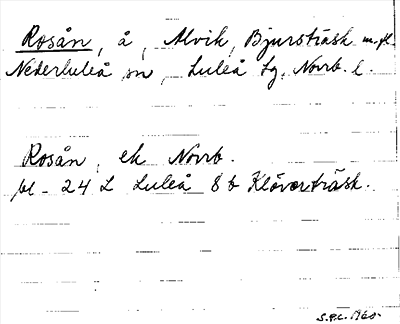 Rosån, å, Alvik, Bjursträsk m.fl.
Nederluleå sn, Luleå tg, Norrb. l.
Rosån, ek Norrb.
bl - 24 L Luleå 8 b Klöverträsk.
S.P.C. 1960